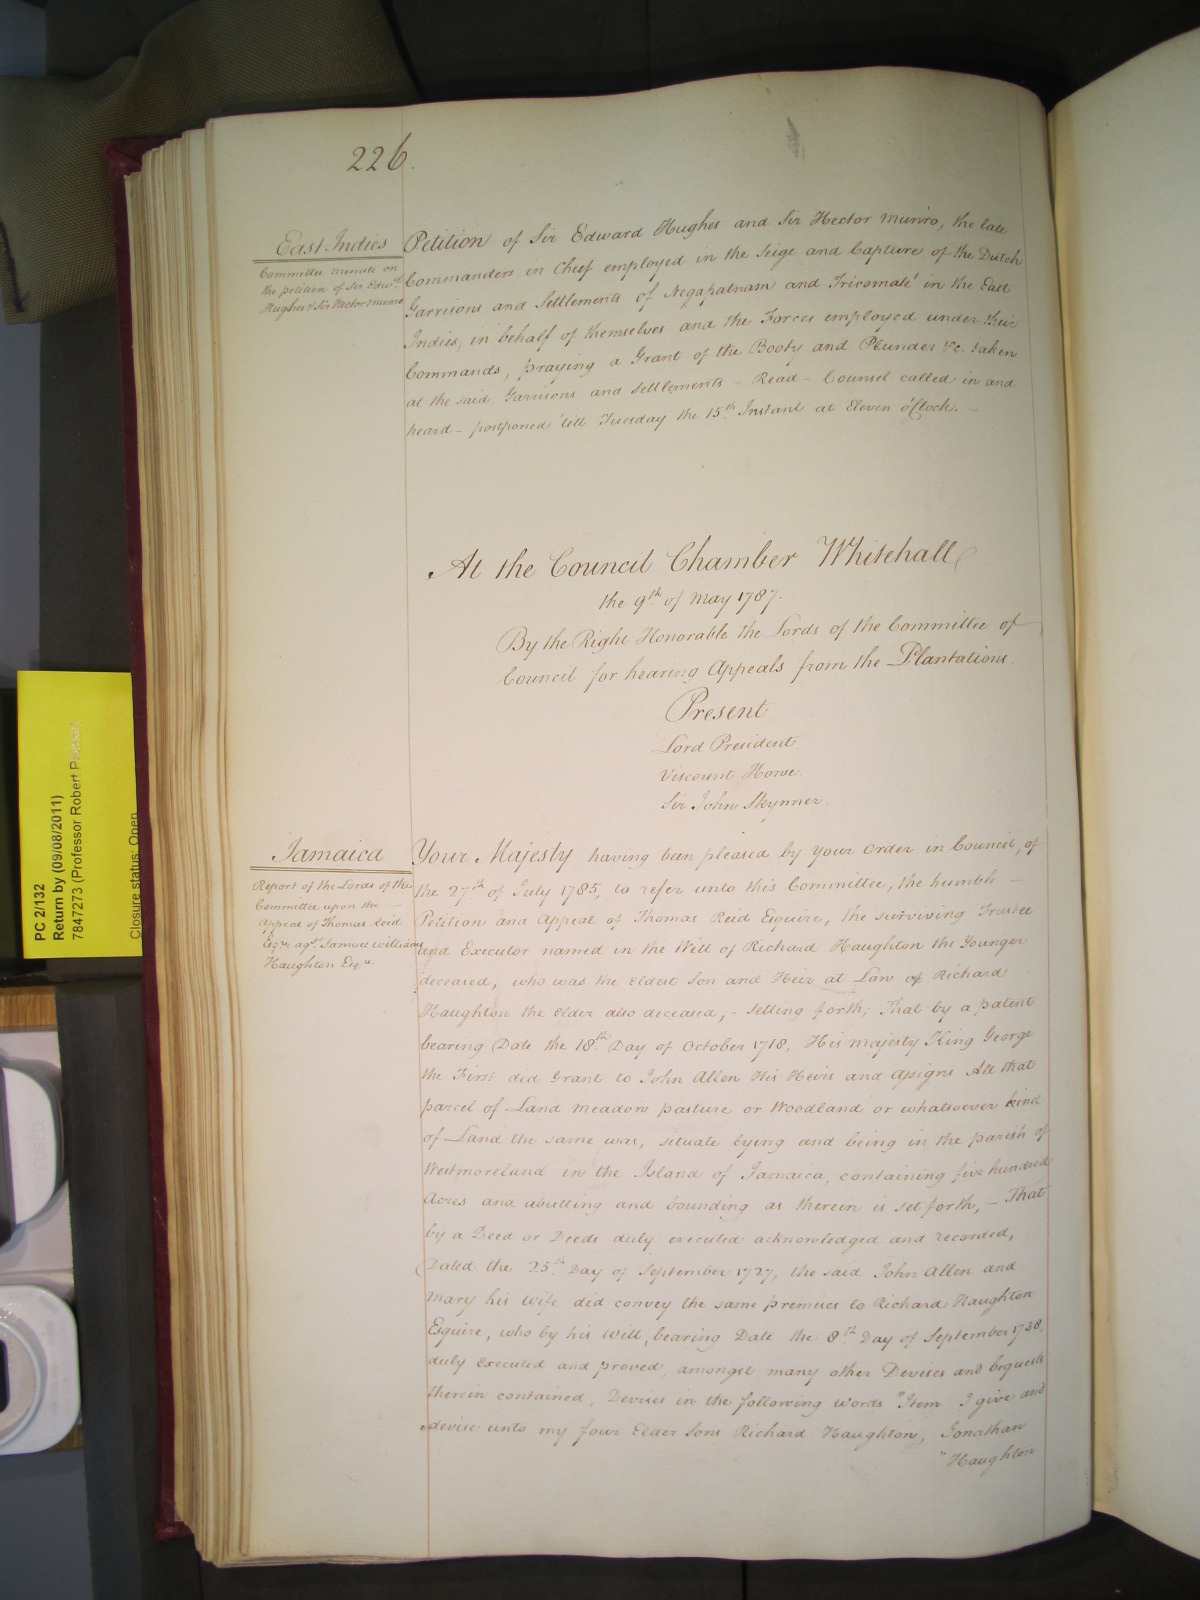 226.
East Indies
Committee Minute on
the petition of Sir Edwd.
Hughes & Sir Hector Munro
Petition of Sir Edward Hughes and Sir Hector Munro, the late
Commanders in Chief employed in the Seige and Capture of the Dutch
Garrisons and Settlements of Negapatnam and Tricomale' in the East
Indies, in behalf of themselves and the Forces employed under their
Commands, praying a Grant of the Booty and Plunder &c. taken
at the said Garrisons and Settlements - Read - Counsel called in and
heard - postponed 'till Tuesday the 15.th Instant at Eleven o'Clock. -
At the Council Chamber Whitehall
the 9th of May 1787.
By the Right Honorable the Lords of the Committee of
Council for hearing Appeals from the Plantations.
Present
Lord President.
Viscount Howe.
Sir John Skynner.
Jamaica
Report of the Lords of the
Committee upon the -
Appeal of Thomas Reid
Esqre. agt. Samuel Williams
Haughton Esqre
Your Majesty having been pleased by Your Order in Council, of
the 27th of July 1785, to refer unto this Committee, the humble -
Petition and Appeal of Thomas Reid Esquire, the surviving Trustee
and Executor named in the Will of Richard Haughton the Younger
deceased, who was the Eldest Son and Heir at Law of Richard
Haughton the Elder also deceased, - setting forth; That by a patent
bearing Date the 18th. Day of October 1718, His Majesty King George
the First did Grant to John Allen His Heirs and Assigns All that
parcel of Land Meadow pasture or Woodland or whatsoever kind
of Land the same was, situate lying and being in the parish of
Westmoreland in the Island of Jamaica, containing five hundred
Acres and abutting and bounding as therein is set forth, - That
by a Deed or Deeds duly executed acknowledged and recorded,
Dated the 25.th Day of September 1727, the said John Allen and
Mary his Wife did convey the same premises to Richard Haughton
Esquire, who by his Will, bearing Date the 8th Day of September 1738.
duly executed and proved, amongst many other Devises and bequests
therein contained, Devises in the following words "Item I give and
devise unto my four Elder Sons Richard Haughton, Jonathan
"Haughton
PC 2/132
Return by (09/08/2011)
7847273 (Professor Robert
Closure status: Open